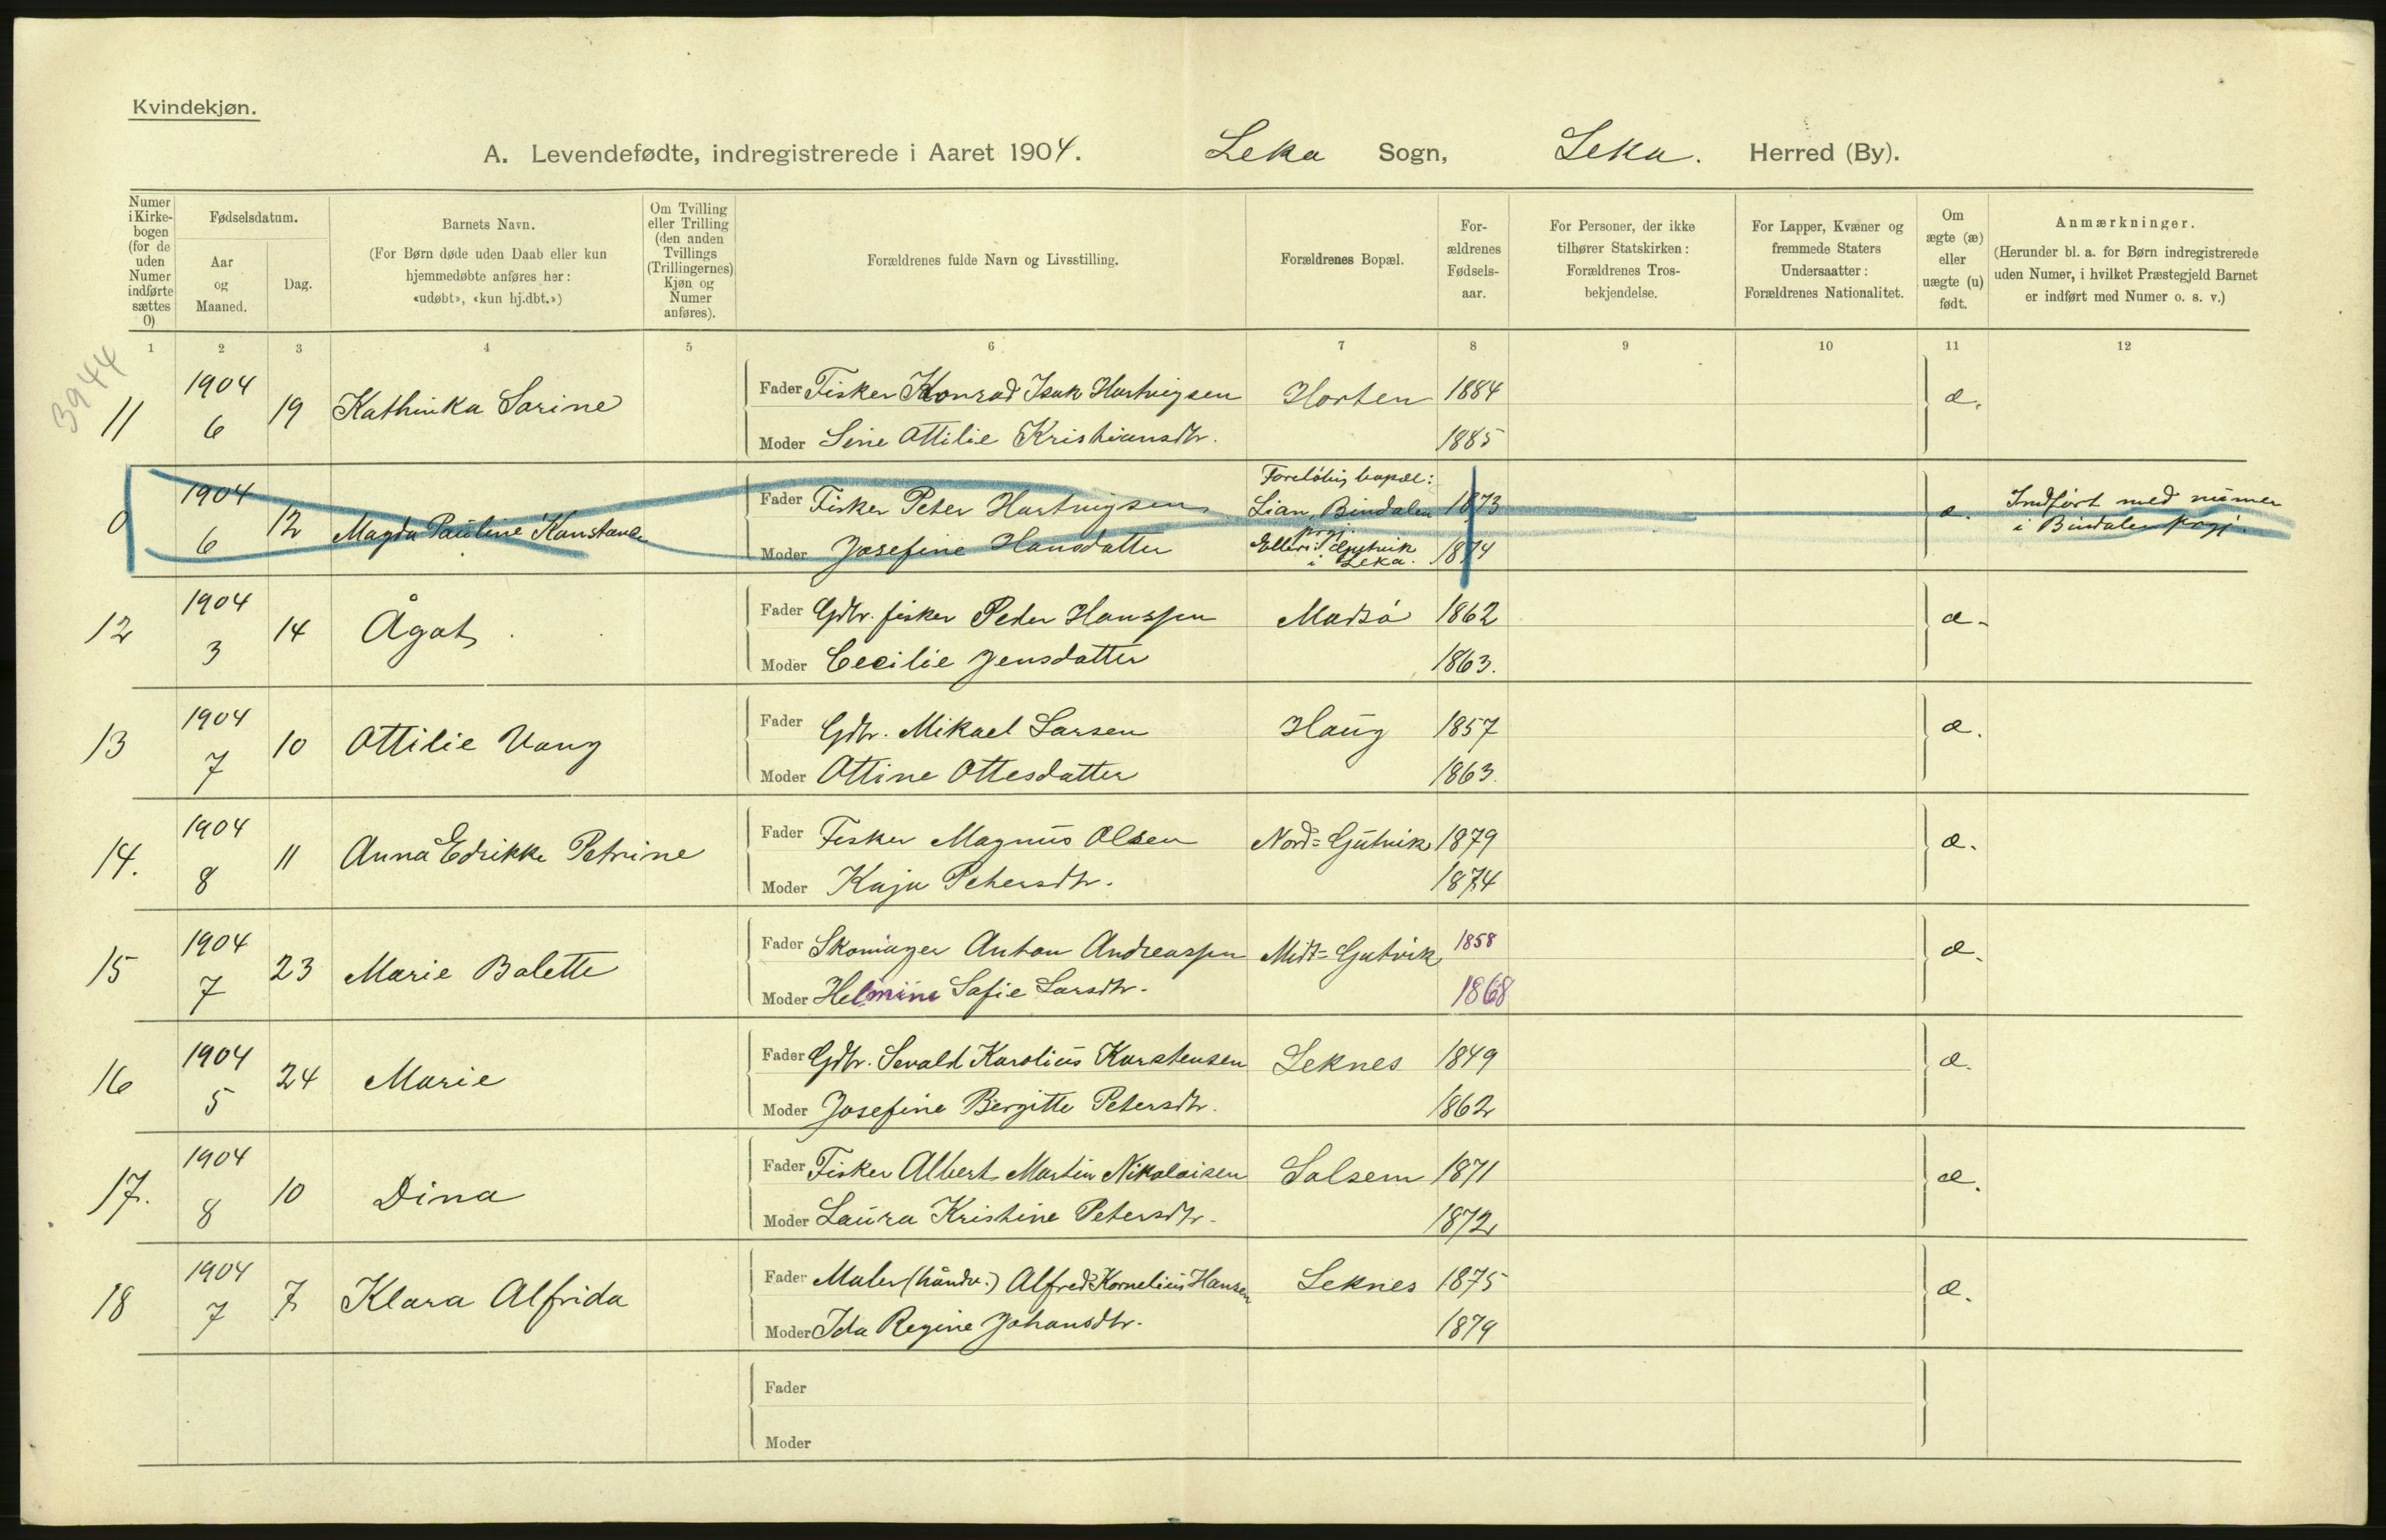 Kvindekjøn.
A. Levendefødte, indregistrerede i Aaret 1904. Leka Sogn, Leka. Herred (By).
Numer i Kirkebogen (for de uden Numer indførte sættes 0)
Fødselsdatum.
Aar og Maaned.
Dag.
Barnets Navn.
(For Børn døde uden Daab eller kun hjemmedøbte anføres her: «udøbt», «kun hj.dbt.»)
Om Tvilling eller Trilling (den anden Tvillings (Trillingernes) Kjøn og Numer anføres).
Forældrenes fulde Navn og Livsstilling.
Forældrenes Bopæl.
Forældrenes Fødselsaar.
For Personer, der ikke tilhører Statskirken: Forældrenes Trosbekjendelse.
For Lapper, Kvæner og fremmede Staters Undersaatter: Forældrenes Nationalitet.
Om ægte (æ) eller uægte (u) født.
Anmærkninger.
(Herunder bl. a. for Børn indregistrerede uden Numer, i hvilket Præstegjeld Barnet er indført med Numer o. s. v.)
1 2 3 4 5 6 7 8 9 10 11 12
3944
11 1904 6 19 Kathinka Sarine Fader Fisker Konrad Isak Hartvigsen Horten 1884 æ.
Moder Sine Attilie Kristiansdtr. 1885
0 1904 6 12 Magda Pauline Konstance Fader Fisker Peter Hartvigsen Foreløbig bopæl: Lian, Bindalen prgj. 1873 æ. Indført med numer i Bindalen prgj.
Moder Josefine Hansdatter Ellers: Gutvik i Leka. 1874
12 1904 3 14 Ågot Fader Gdbr. fisker Peder Hanssen Madsø 1862 æ.
Moder Cecilie Jensdatter 1863.
13 1904 7 10 Ottilie Vang Fader Gdbr. Mikael Larsen Haug 1857 æ.
Moder Ottine Ottesdatter 1863.
14. 1904 8 11 Anna Edrikke Petrine Fader Fisker Magnus Olsen Nord-Gutvik 1879 æ.
Moder Kaja Petersdtr. 1874
15 1904 7 23 Marie Balette Fader Skomager Anton Andreassen Midt-Gutvik 1858 æ.
Moder Helmine Sofie Larsdtr. 1868
16 1904 5 24 Marie Fader Gdbr. Sevald Karolius Karstensen Leknes 1849 æ.
Moder Josefine Bergitte Petersdtr. 1862
17. 1904 8 10 Dina Fader Fisker Albert Martin Nikolaisen Solsem 1871 æ.
Moder Laura Kristine Petersdtr. 1872
18 1904 7 7 Klara Alfrida Fader Maler (håndv.) Alfred Kornelius Hansen Leknes 1875 æ.
Moder Ida Regine Johansdtr. 1879
Fader
Moder